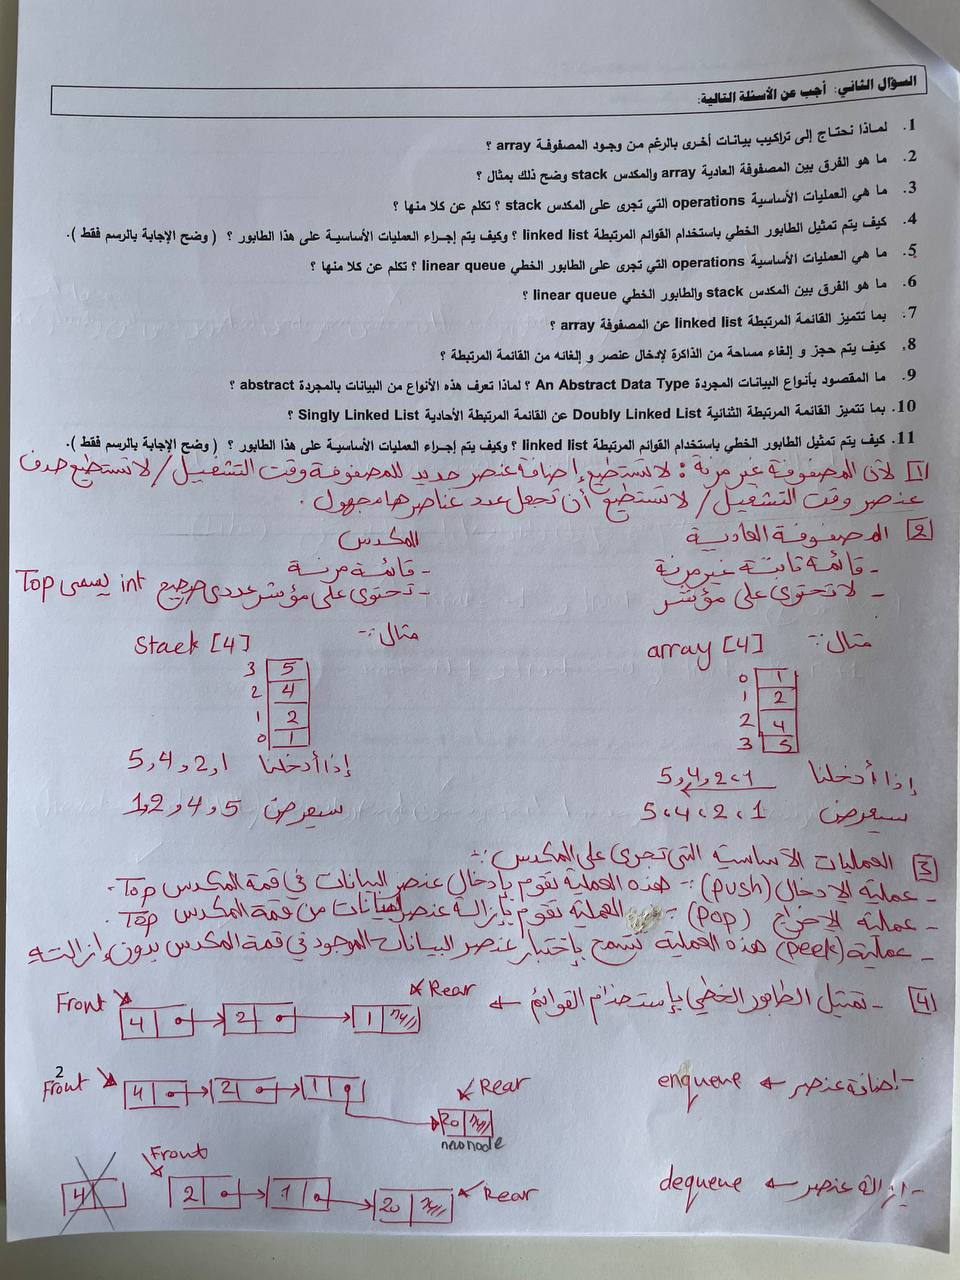 السؤال الثاني: أجب عن الأسئلة التالية:
1. لماذا نحتاج إلى تراكيب بيانات أخرى بالرغم من وجود المصفوفة array ؟
2. ما هو الفرق بين المصفوفة العادية array والمكدس stack وضح ذلك بمثال ؟
3. ما هي العمليات الأساسية operations التي تجرى على المكدس stack ؟ تكلم عن كلا منها ؟
4. كيف يتم تمثيل الطابور الخطي باستخدام القوائم المرتبطة linked list ؟ وكيف يتم إجراء العمليات الأساسية على هذا الطابور ؟ ( وضح الإجابة بالرسم فقط ).
5. ما هي العمليات الأساسية operations التي تجرى على الطابور الخطي linear queue ؟ تكلم عن كلا منها ؟
6. ما هو الفرق بين المكدس stack والطابور الخطي linear queue ؟
7. بما تتميز القائمة المرتبطة linked list عن المصفوفة array ؟
8. كيف يتم حجز و إلغاء مساحة من الذاكرة لإدخال عنصر و إلغائه من القائمة المرتبطة ؟
9. ما المقصود بأنواع البيانات المجردة An Abstract Data Type ؟ لماذا تعرف هذه الأنواع من البيانات بالمجردة abstract ؟
10. بما تتميز القائمة المرتبطة الثنائية Doubly Linked List عن القائمة المرتبطة الأحادية Singly Linked List ؟
11. كيف يتم تمثيل الطابور الخطي باستخدام القوائم المرتبطة linked list ؟ وكيف يتم إجراء العمليات الأساسية على هذا الطابور ؟ ( وضح الإجابة بالرسم فقط ).
1 لأن المصفوفة غير مرنة : لا تستطيع إضافة عنصر جديد للمصفوفة وقت التشغيل / لا تستطيع حذف
عنصر وقت التشغيل / لا تستطيع أن تجعل عدد عناصرها مجهول .
2 المصفوفة العادية المكدس
- قائمة ثابتة غير مرنة - قائمة مرنة
- لا تحتوي على مؤشر - تحتوي على مؤشر عددي صحيح int يسمى Top
مثال :- مثال :-
array [4] Stack [4]
0 1 3 5
1 2 2 4
2 4 1 2
3 5 0 1
إذا أدخلنا 1، 2، 4، 5 إذا أدخلنا 1، 2، 4، 5
سيعرض 1، 2، 4، 5 سيعرض 5، 4، 2، 1
3 العمليات الأساسية التي تجرى على المكدس :-
- عملية الإدخال (push) :- هذه العملية تقوم بإدخال عنصر البيانات في قمة المكدس Top.
- عملية الإخراج (pop) :- العملية تقوم بإزالة عنصر البيانات من قمة المكدس Top.
- عملية (peek) هذه العملية تسمح بإختبار عنصر البيانات الموجود في قمة المكدس بدون إزالته
4 - تمثيل الطابور الخطي بإستخدام القوائم ←
Front Rear
4 2 1 null
- إضافة عنصر ← enqueue
2
Front Rear
4 2 1 20 null
new node
- إزالة عنصر ← dequeue
Front
4 2 1 20 null Rear